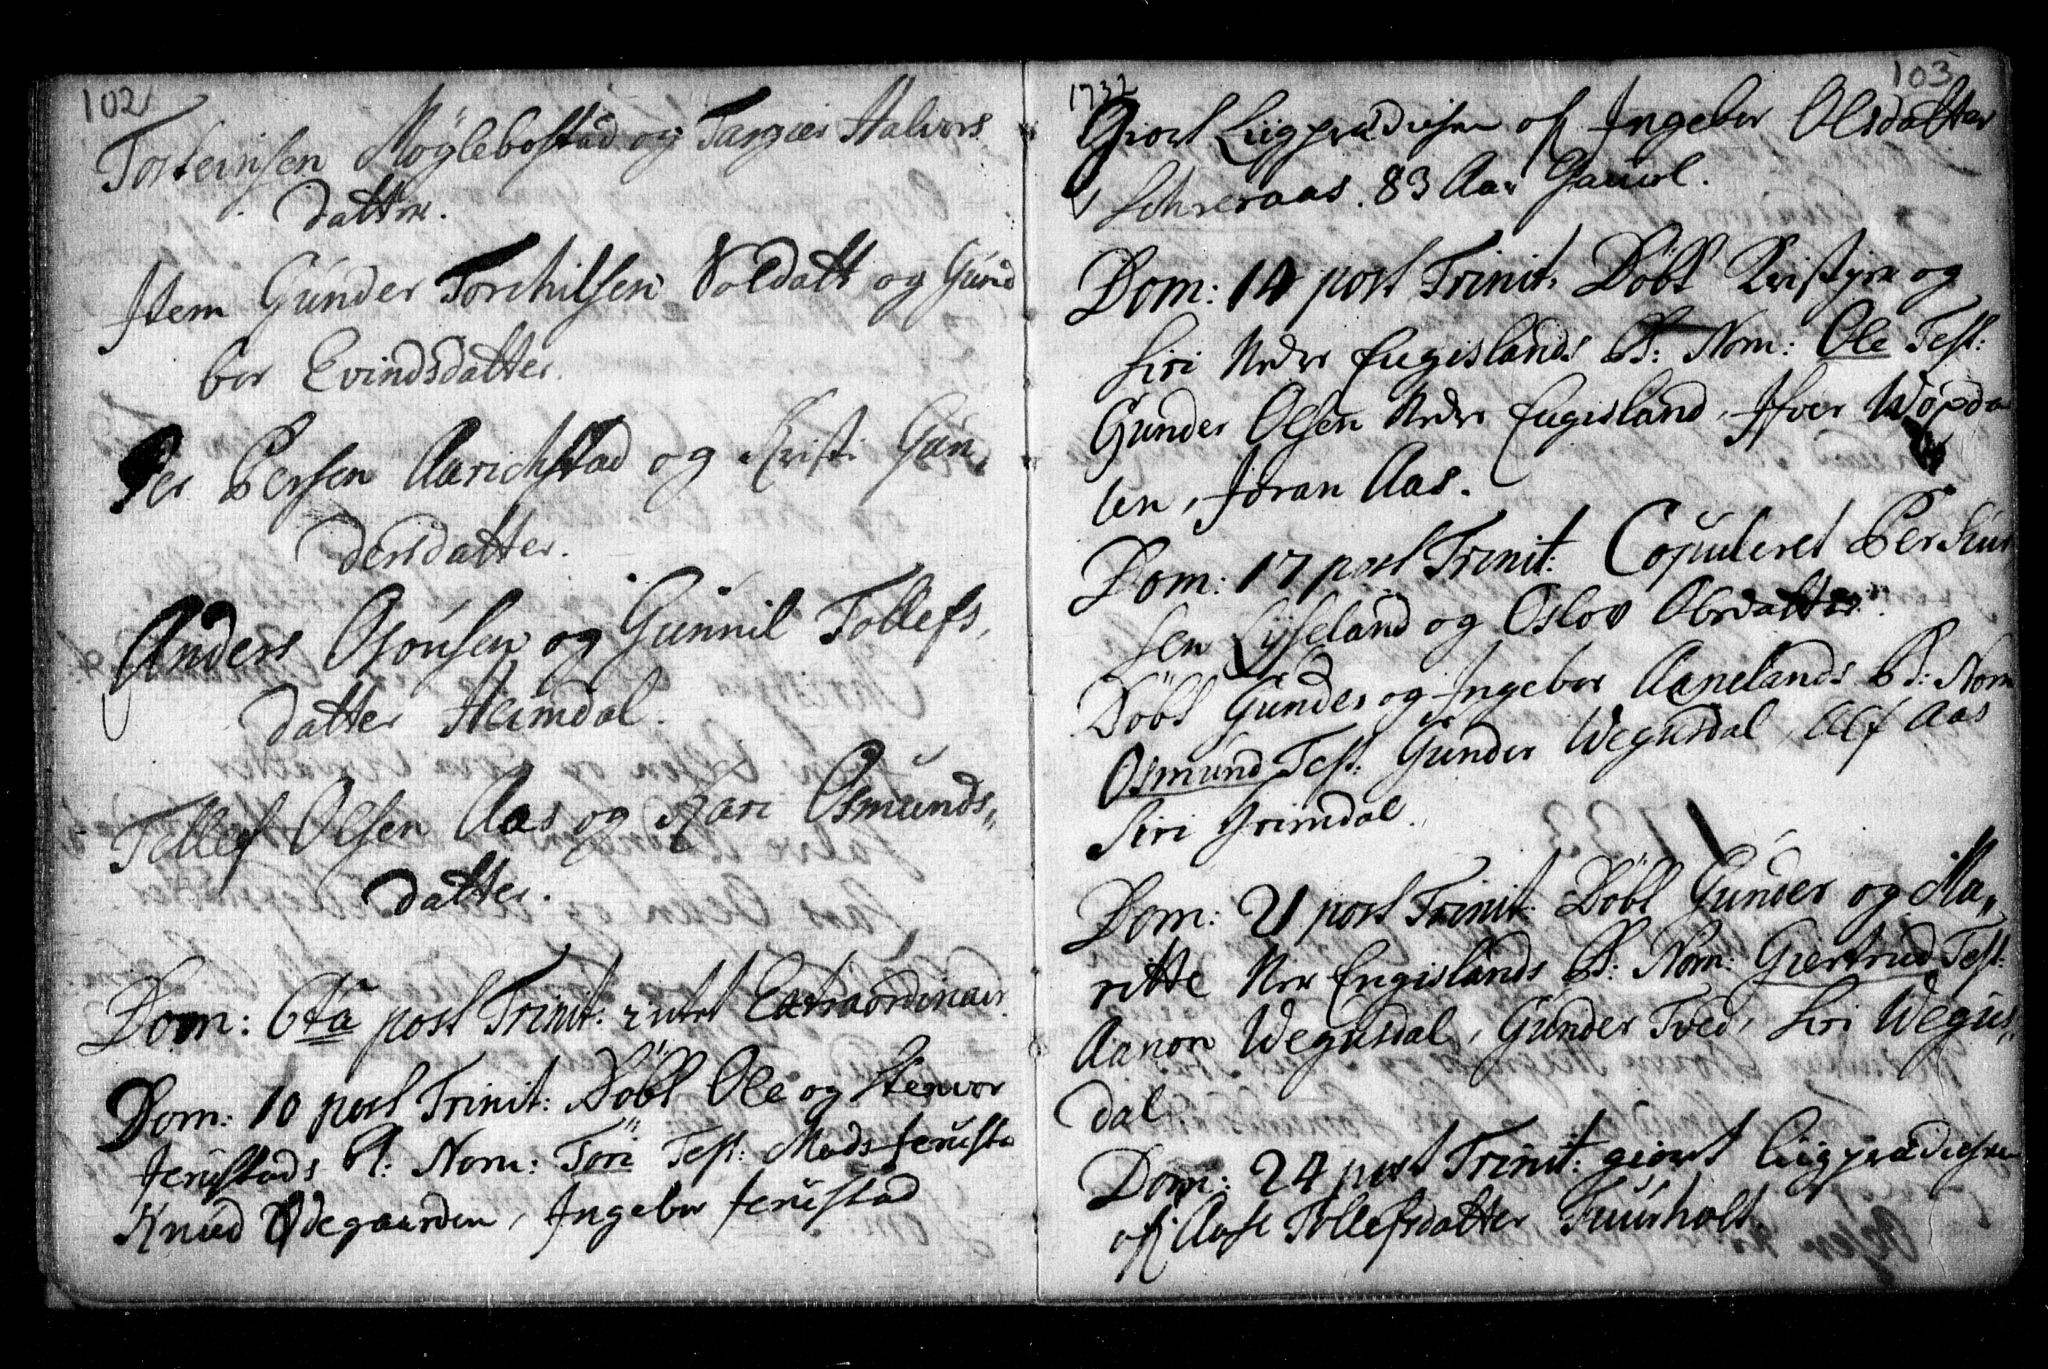 102
Torteinsen Møglebostad og Targier Halvors
datter.
Item Gunder Torchilsen Soldatt og Gun
bor Evindsdatter.
Per Persen Aarichstad og Kristi Gun,
dersdatter.
Anders Osoufsen og Gunnil Tollefs,
datter Heimdal.
Tellef Olsen Aas og Kari Osmunds„
datter.
Dom: 6ta post Trinit: intet Extraordinair.
Dom: 10 post Trinit: Döbt Ole og Stenvor
Jerustads B: Nom: Tori Test: Mads Jerusta
Knud Ødegaarden, Ingebor Jerustad
1732
103
Giort Liigprædichen of Ingebor Olsdatter
Schreraas. 83 Aar Gamel.
Dom: 14 post Trinit: Döbt og
Siri Nedre Eugislands B: Nom: Ole Test:
Gunder Olsen Nedre Eugisland, Ifver
len, Joran Aas.
Dom: 17 post Trinit: Copuleret Per Siur
sen Lyseland og Oslov Olsdatter.
Döbt Gunder og Ingebor Aanelands B: Nom
Osmund Test: Gunder Wegusdal, Alf Aas
Siri Grimdal.
Dom: 21 post Trinit: Döbt Gunder og Ma„
ritte Ner Eugislands B: Nom: Giertrud Test:
Aanon Wegusdal, Gunder Tved, Siri Wegus„
dal.
Dom: 24 post Trinit: giort Liigprædichen
of Aase Tollefsdatter Fuurholt.